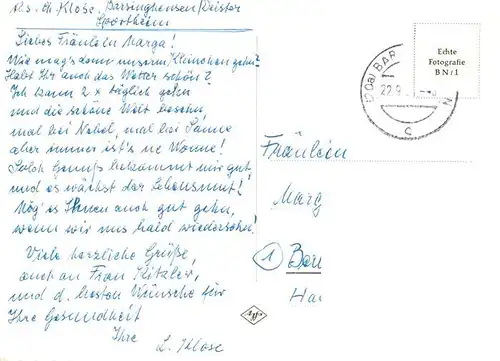 Abs. Ch. Klose, Barsinghausen/Deister
Sportheim
Liebes Fräulein Marga!
Wie mag's denn unserm Kleinchen gehn?
Habt Ihr auch das Wetter schön?
Ich kann 2 x täglich gehn
und die schöne Welt besehn,
mal bei Nebel, mal bei Sonne
aber immer ist's ne Wonne!
Solch Genuß bekommt mir gut,
und es wächst der Lebensmut!
Mög' es Ihnen auch gut gehn,
wenn wir uns bald wiedersehn!
Viele herzliche Grüße,
auch an Frau
und d. besten Wünsche für
Ihre Gesundheit
Ihre
L. Klose
Echte
Fotografie
BN/1
(20a) BAR
22.9.
N
c
Fräulein
Marg
1 Bon
Ha